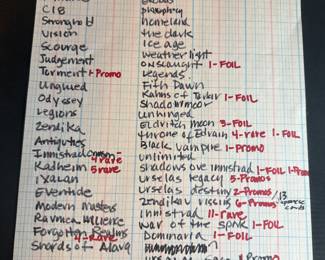 CIB
Stronghold
Vision
Scourge
Judgement
Torment 1-Promo
Unglued
Odyssey
Legions
Zendika
Antiquites
Innistrad common
4-rare
Kaldheim 5rare
Ixalan
Eventide
Modern Masters
Ravnica
Forgotten Realms
4-Rare
Shards of Alara
Exodus
homeland
the dark
Ice age
weather light
onslaught 1-FOIL
Legends
Fith Dawn
Kahns of Tarkir 1-FOIL
Shadowmoor
unhinged
Eldritch moon 3-FOIL
throne of Eldrain 4-rare 1-FOIL
Black Vampire 1-promo
unlimited
shadows over innistrad 1-FOIL 1-Promo
urselas legacy 5-Promos
urselas destiny 2-Promos
zendikar rising 6-Promos /13
innistrad 11-rare
war of the spark 1-FOIL
Dominaria 1-FOIL
Promo